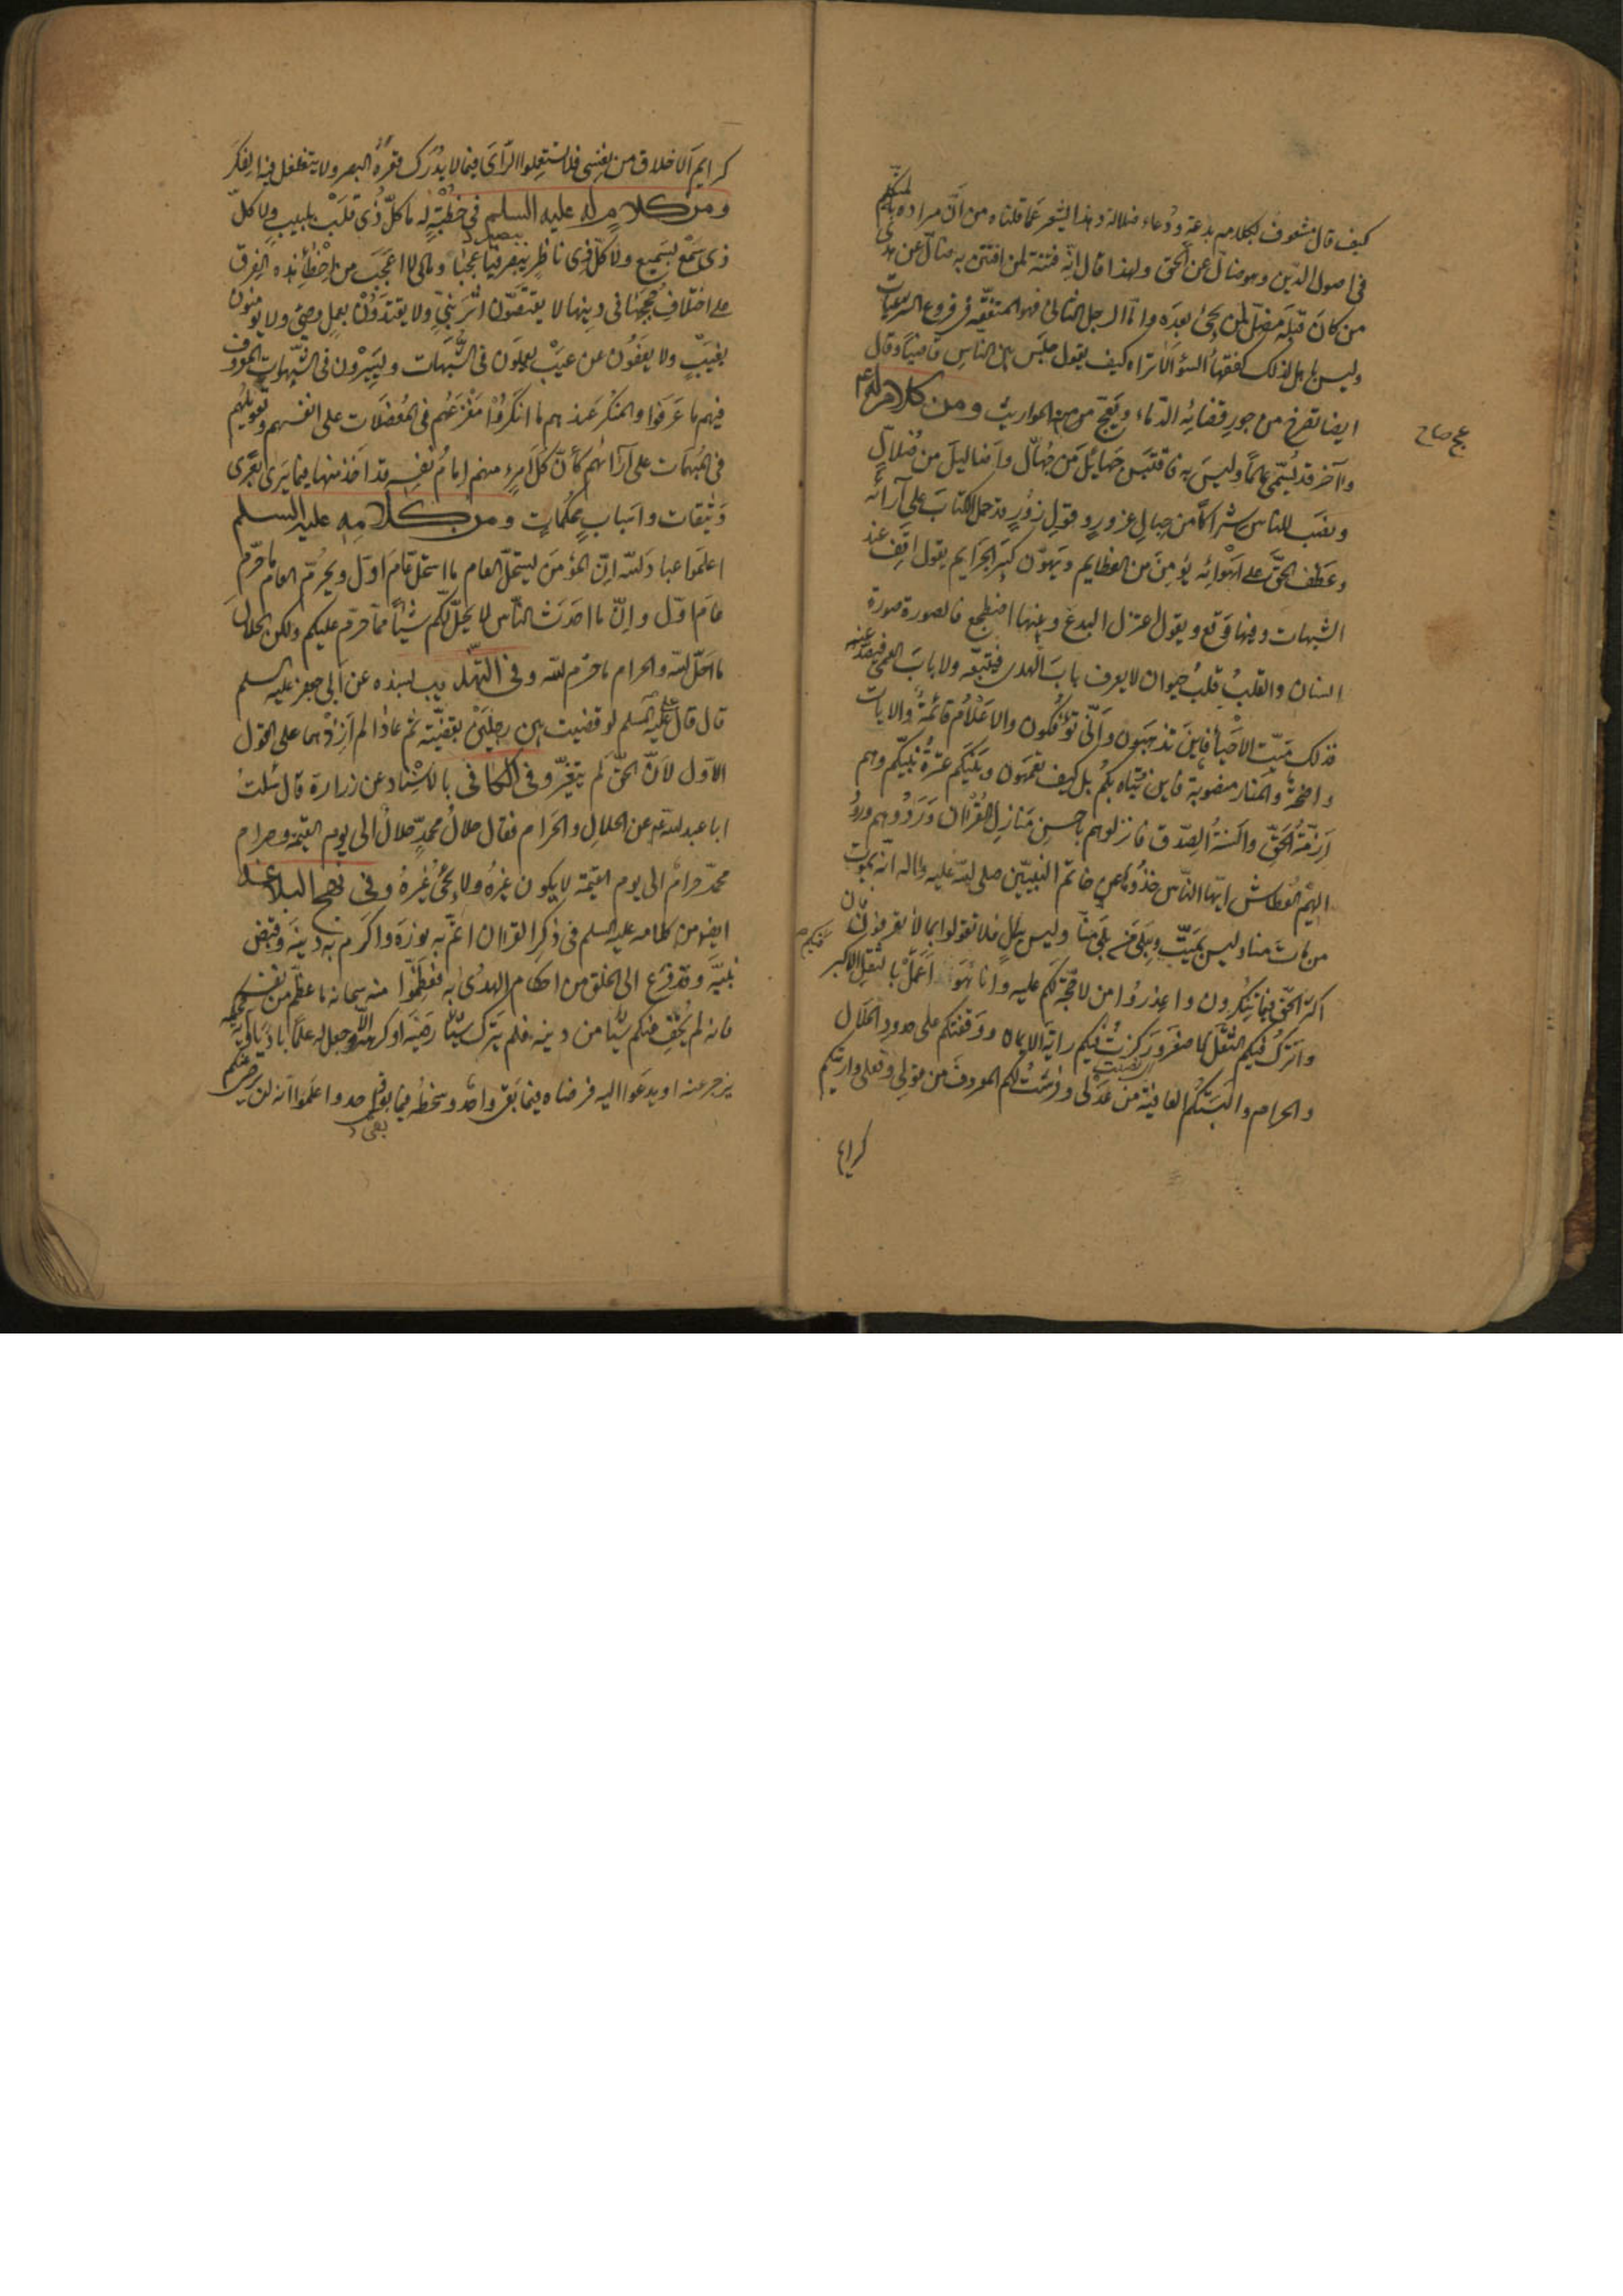 كيف قال مشغوف بكلامه بدعة ودعاء ضلالة وهذا الشيء عما قلناه من ان مراده بالمتكلم
في اصول الدين وهو ضال عن الحق ولهذا قال انه فتنة لمن افتتن به ضال عن هدى
من كان قبله مضل لمن يجئ بعده واما الرجل الثاني فهو المتفقه في فروع الشرعيات
وليس باهل لذلك كفقهاء السوء الا تراه كيف يقول جلس بين الناس قاضيا وقال
ايضا تصرخ من جور قضائه الدماء وتعج منه المواريث ومن كلام له ع
عج صاح
وآخر قد تسمى عالما وليس به فاقتبس جهائل من جهال واضاليل من ضلال
ونصب للناس شراكا من حبال غرور وقول زور قد حمل الكتاب على آرائه
وعطف الحق على اهوائه يؤمن من العظايم ويهون كبير الجرايم يقول اقف عند
الشبهات وفيها وقع ويقول اعتزل البدع وبينها اضطجع فالصورة صورة
انسان والقلب قلب حيوان لا يعرف باب الهدى فيتبعه ولا باب العمى فيصد عنه
فذلك ميت الاحياء فاين تذهبون وانى تؤفكون والاعلام قائمة والايات
واضحة والمنار منصوبة فاين يتاه بكم بل كيف تعمهون وبينكم عترة نبيكم وهم
ازمة الحق والسنة الصدق فانزلوهم باحسن منازل القران وردوهم ورود
الهيم العطاش ايها الناس خذوها عن خاتم النبيين صلى الله عليه واله انه يموت
من مات منا وليس بميت ويبلى من بلى منا وليس ببال فلا تقولوا بما لا تعرفون فان
اكثر الحق فيما تنكرون واعذروا من لا حجة لكم عليه وانا هو الم اعمل فيكم بالثقل الاكبر
واترك فيكم الثقل الاصغر وركزت فيكم راية الايمان ووقفتكم على حدود الحلال
والحرام والبستكم العافية من عدلي وفرشت لكم المعروف من قولي وفعلي واريتكم
كرايم
كرايم الاخلاق من نفسي فلا تستعملوا الراى فيما لا يدرك قعره البصر ولا يتغلغل فيه الفكر
ومن كلام له عليه السلم في خطبة له ما كل ذي قلب بلبيب ولا كل
ذي سمع بسميع ولا كل ذي ناظر ببصير فيا عجبا ومالي لا اعجب من خطأ هذه الفرق
على اختلاف حججها في دينها لا يقتصون اثر نبي ولا يقتدون بعمل وصي ولا يؤمنون
بغيب ولا يعفون عن عيب يعملون في الشبهات ويسيرون في الشهوات المعروف
فيهم ما عرفوا والمنكر عندهم ما انكروا مفزعهم في المعضلات على انفسهم وتعويلهم
في المبهمات على آرائهم كأن كل امرئ منهم امام نفسه قد اخذ منها فيما يرى بعرى
وثيقات واسباب محكمات ومن كلامه عليه السلم
اعلموا عباد الله ان المؤمن يستحل العام ما استحل عام اول ويحرم العام ما حرم
عام اول وان ما احدث الناس لا يحل لكم شيئا مما حرم عليكم ولكن الحلال
ما احل الله والحرام ما حرم الله وفي التهذيب بسنده عن ابي جعفر عليه السلم
قال قال علي عليه السلم لو قضيت بين رجلين بقضية ثم عادا لم ازدهما على القول
الاول لان الحق لم يتغير وفي الكافي بالاسناد عن زرارة قال سئلت
ابا عبد الله ع عن الحلال والحرام فقال حلال محمد حلال الى يوم القيمة وحرام
محمد حرام الى يوم القيمة لا يكون غيره ولا يجئ غيره وفي نهج البلاغة
ايضا من كلامه عليه السلم في ذكر القران اتم به نوره واكرم به دينه وقبض
نبيه وقد فرغ الى الخلق من احكام الهدى به فعظموا منه سبحانه ما عظم من نفسه
فانه لم يخف عنكم شيئا من دينه فلم يترك شيئا رضيه او كرهه الا وجعل له علما باديا وآية محكمة
يزجر عنه او يدعوا اليه فرضاه فيما بقى واحد وسخطه فيما بقى واحد واعلموا انه لن يرضى عنكم